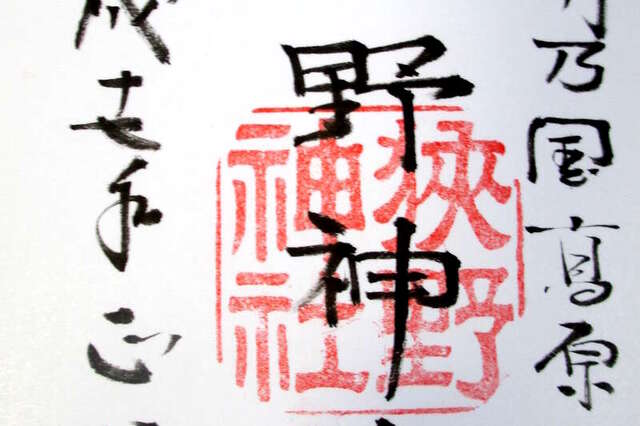 乃国高原
野神
狭野
神社
成十七年正